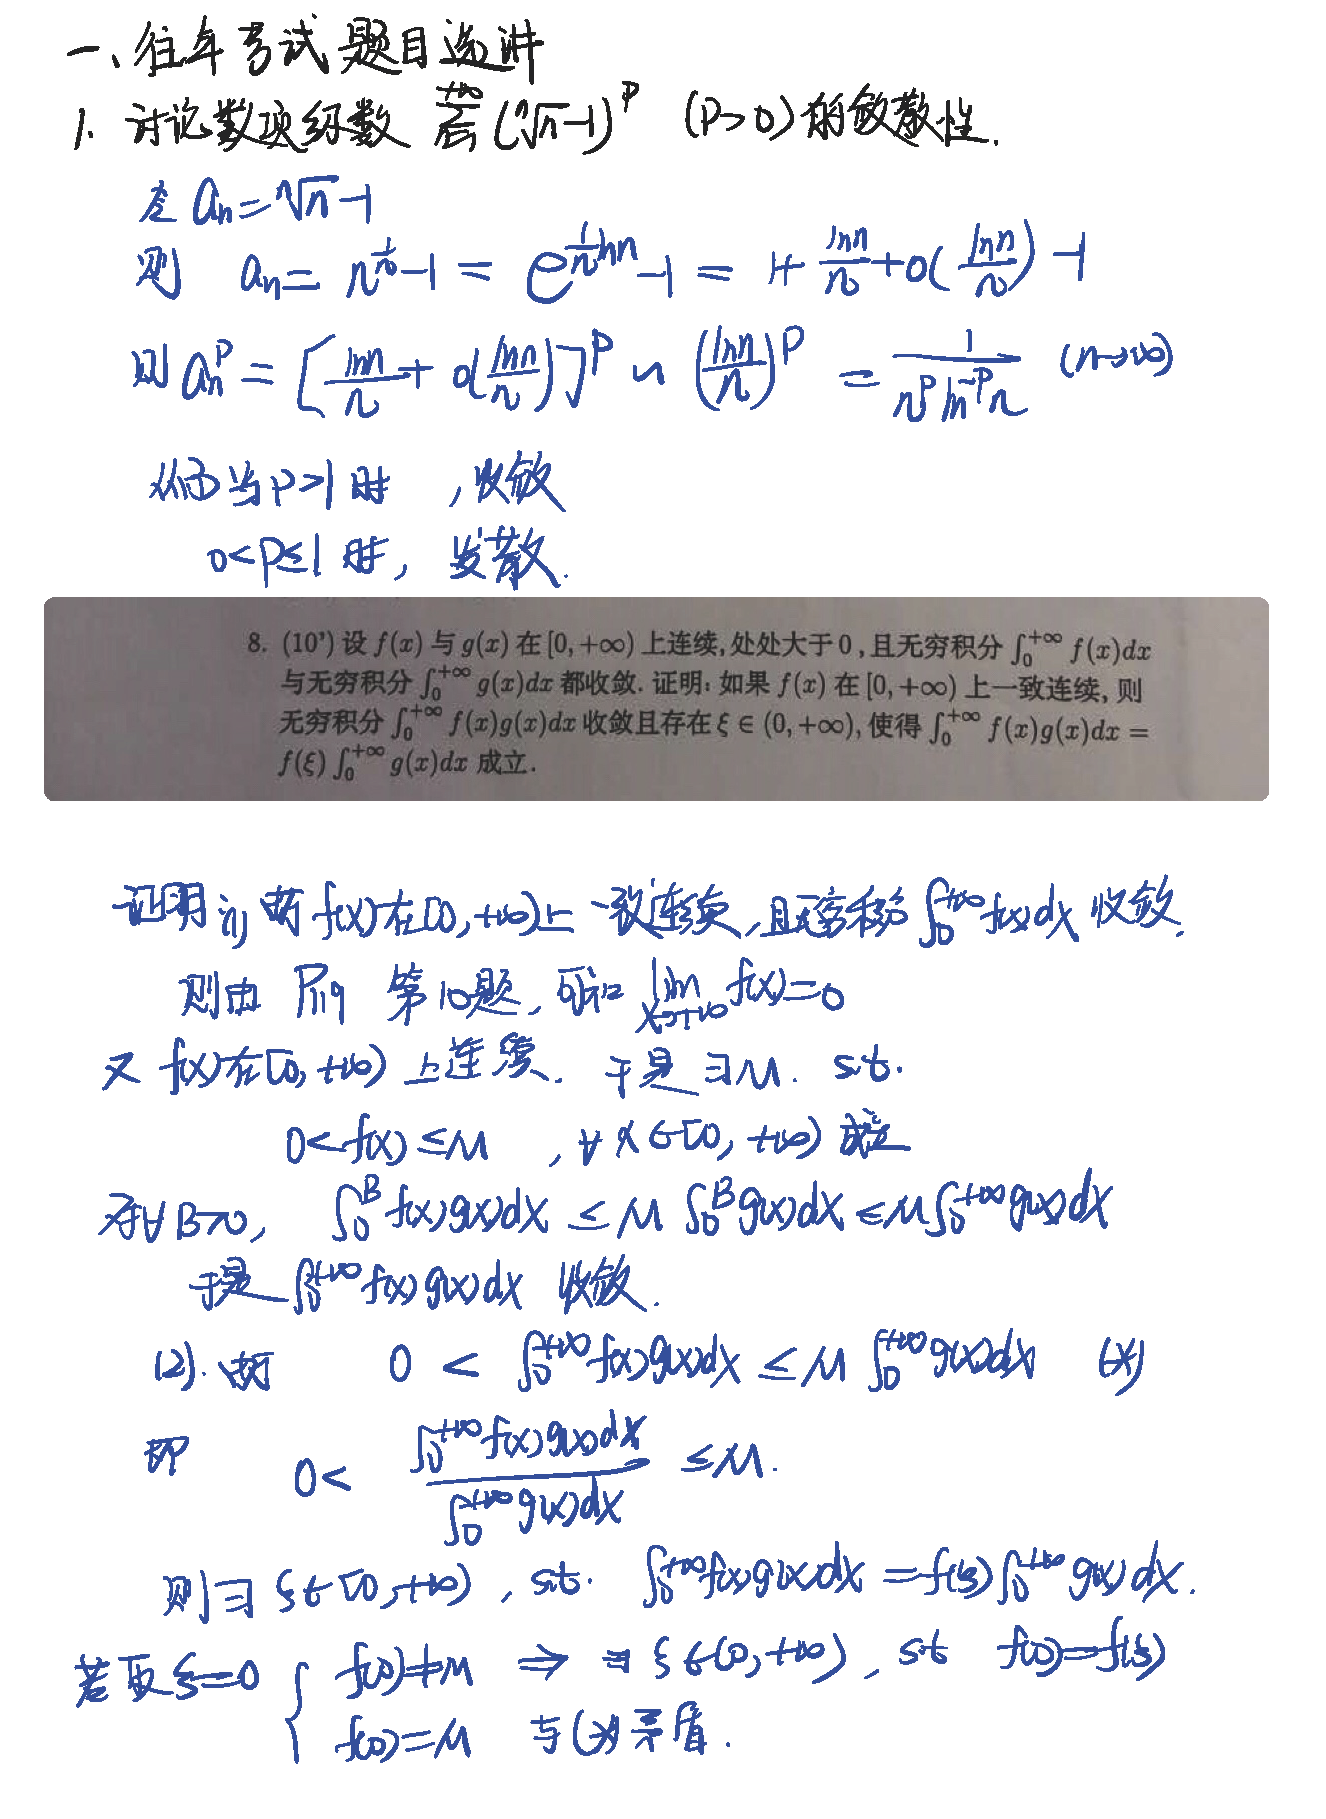 一、往年考试题目选讲
1. 讨论数项级数 $\sum_{n=1}^{+\infty}(\sqrt[n]{n}-1)^p$ (p>0)的敛散性.
令 $a_n=\sqrt[n]{n}-1$
则 $a_n=n^{\frac{1}{n}}-1=e^{\frac{1}{n}\ln n}-1=1+\frac{\ln n}{n}+o(\frac{\ln n}{n})-1$
则 $a_n^p=[\frac{\ln n}{n}+o(\frac{\ln n}{n})]^p\sim(\frac{\ln n}{n})^p=\frac{1}{n^p\ln^{-p}n}$ (n→∞)
从而当p>1时 ,收敛
0<p≤1时, 发散.
8. (10') 设 f(x) 与 g(x) 在 [0,+∞) 上连续, 处处大于 0 , 且无穷积分 $\int_0^{+\infty}f(x)dx$
与无穷积分 $\int_0^{+\infty}g(x)dx$ 都收敛. 证明: 如果 f(x) 在 [0,+∞) 上一致连续, 则
无穷积分 $\int_0^{+\infty}f(x)g(x)dx$ 收敛且存在 ξ ∈ (0,+∞), 使得 $\int_0^{+\infty}f(x)g(x)dx=$
$f(\xi)\int_0^{+\infty}g(x)dx$ 成立.
证明 (1) 由于f(x)在[0,+∞)上一致连续,且无穷积分 $\int_0^{+\infty}f(x)dx$ 收敛.
则由 P119 第10题, 可知 $\lim_{x\to+\infty}f(x)=0$
又 f(x)在[0,+∞) 上连续. 于是∃M. s.t.
0<f(x)≤M ,∀x∈[0,+∞) 成立
对∀B>0, $\int_0^B f(x)g(x)dx\le M\int_0^B g(x)dx\le M\int_0^{+\infty}g(x)dx$
于是 $\int_0^{+\infty}f(x)g(x)dx$ 收敛.
(2). 由于 $0<\int_0^{+\infty}f(x)g(x)dx\le M\int_0^{+\infty}g(x)dx$ (*)
即 $0<\frac{\int_0^{+\infty}f(x)g(x)dx}{\int_0^{+\infty}g(x)dx}\le M.$
则∃ ξ∈[0,+∞), s.t. $\int_0^{+\infty}f(x)g(x)dx=f(\xi)\int_0^{+\infty}g(x)dx.$
若取ξ=0 { f(0)≠M ⇒ ∃ ξ∈(0,+∞), s.t f(0)=f(ξ)
f(0)=M 与(*)矛盾.